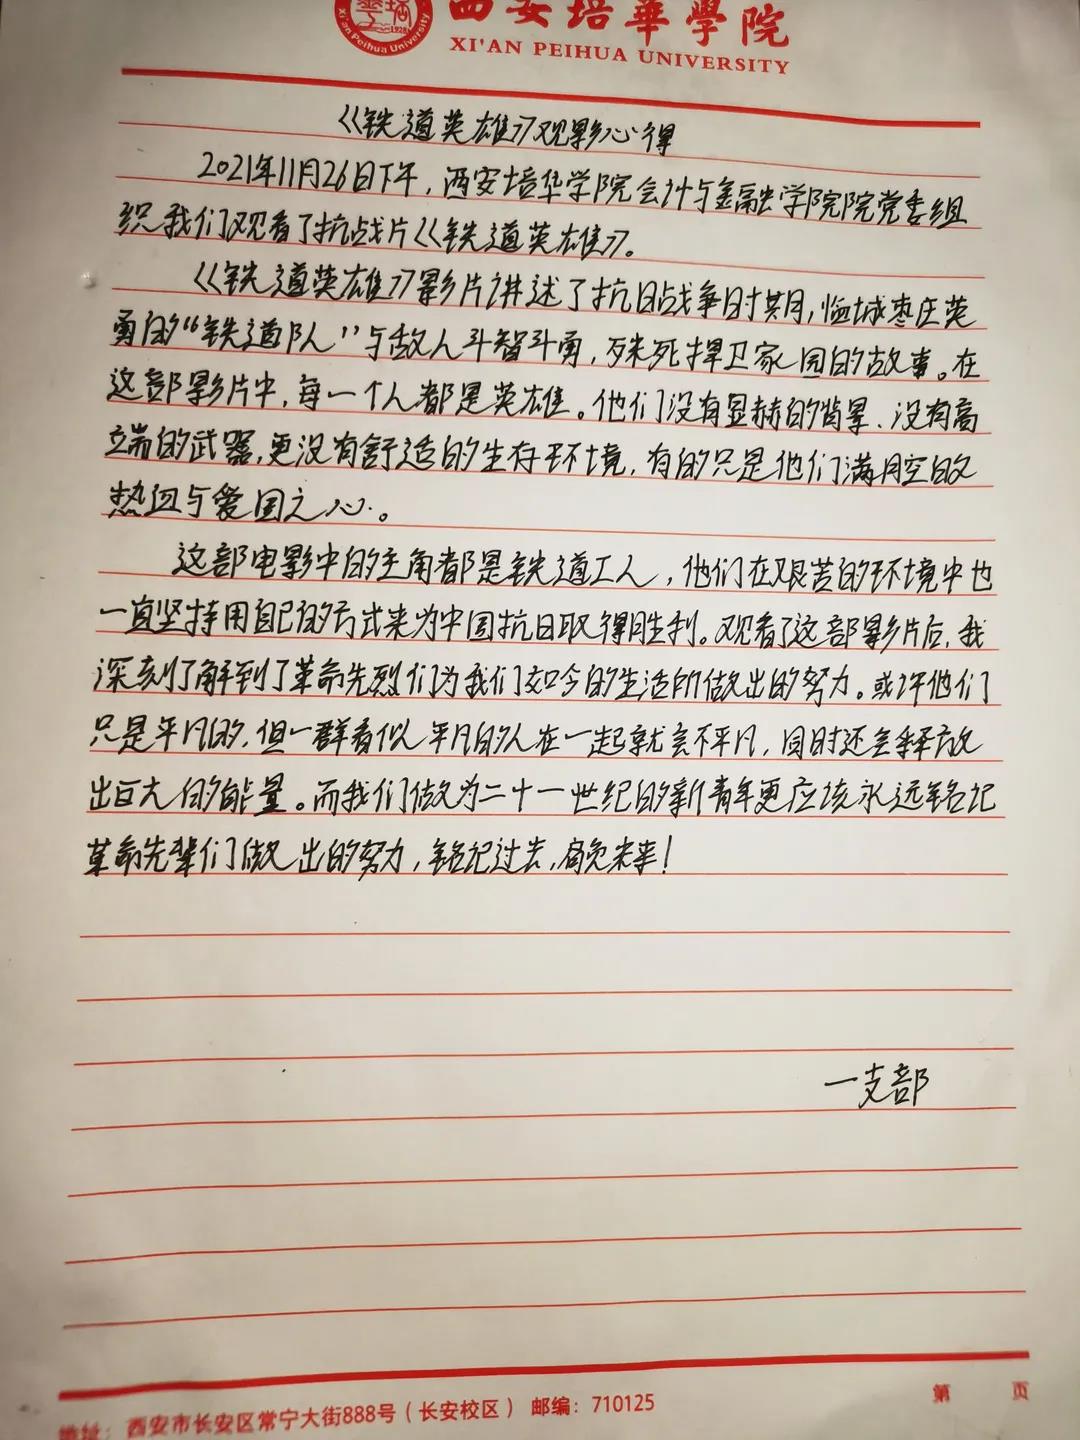 西安培華學院
XI'AN PEIHUA UNIVERSITY
Xi'an Peihua University
1928
《铁道英雄》观影心得
2021年11月26日下午，西安培华学院会计与金融学院院党委组
织我们观看了抗战片《铁道英雄》。
《铁道英雄》影片讲述了抗日战争时期，临城枣庄英
勇的“铁道队”与敌人斗智斗勇，殊死捍卫家园的故事。在
这部影片中，每一个人都是英雄。他们没有显赫的背景、没有高
端的武器，更没有舒适的生存环境，有的只是他们满腔的
热血与爱国之心。
这部电影中的主角都是铁道工人，他们在艰苦的环境中也
一直坚持用自己的方式来为中国抗日取得胜利。观看了这部影片后，我
深刻了解到了革命先烈们为我们如今的生活所做出的努力。或许他们
只是平凡的，但一群看似平凡的人在一起就会不平凡，同时还会释放
出巨大的能量。而我们做为二十一世纪的新青年更应该永远铭记
革命先辈们做出的努力，铭记过去，奋勉未来！
一支部
第 页
地址：西安市长安区常宁大街888号（长安校区） 邮编：710125